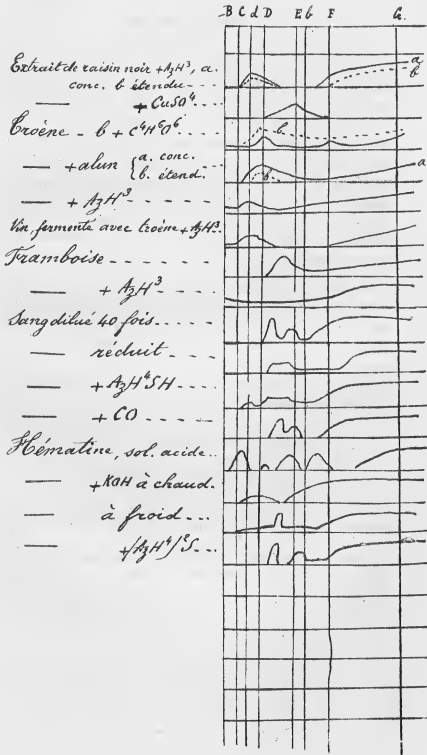 B C d D E b F G.
Extrait de raisin noir + AzH³, a.
conc. b étendu
— + CuSO⁴
Troène - b + C⁴H⁶O⁶
— + alun { a. conc.
b. étend.
— + AzH³
Vin fermenté avec troène + AzH³
Framboise
— + AzH³
Sang dilué 40 fois
— réduit
— + AzH⁴SH
— + CO
Hématine, sol. acide
— + KOH à chaud.
— à froid
— + (AzH⁴)²S
a
b
b
b
a